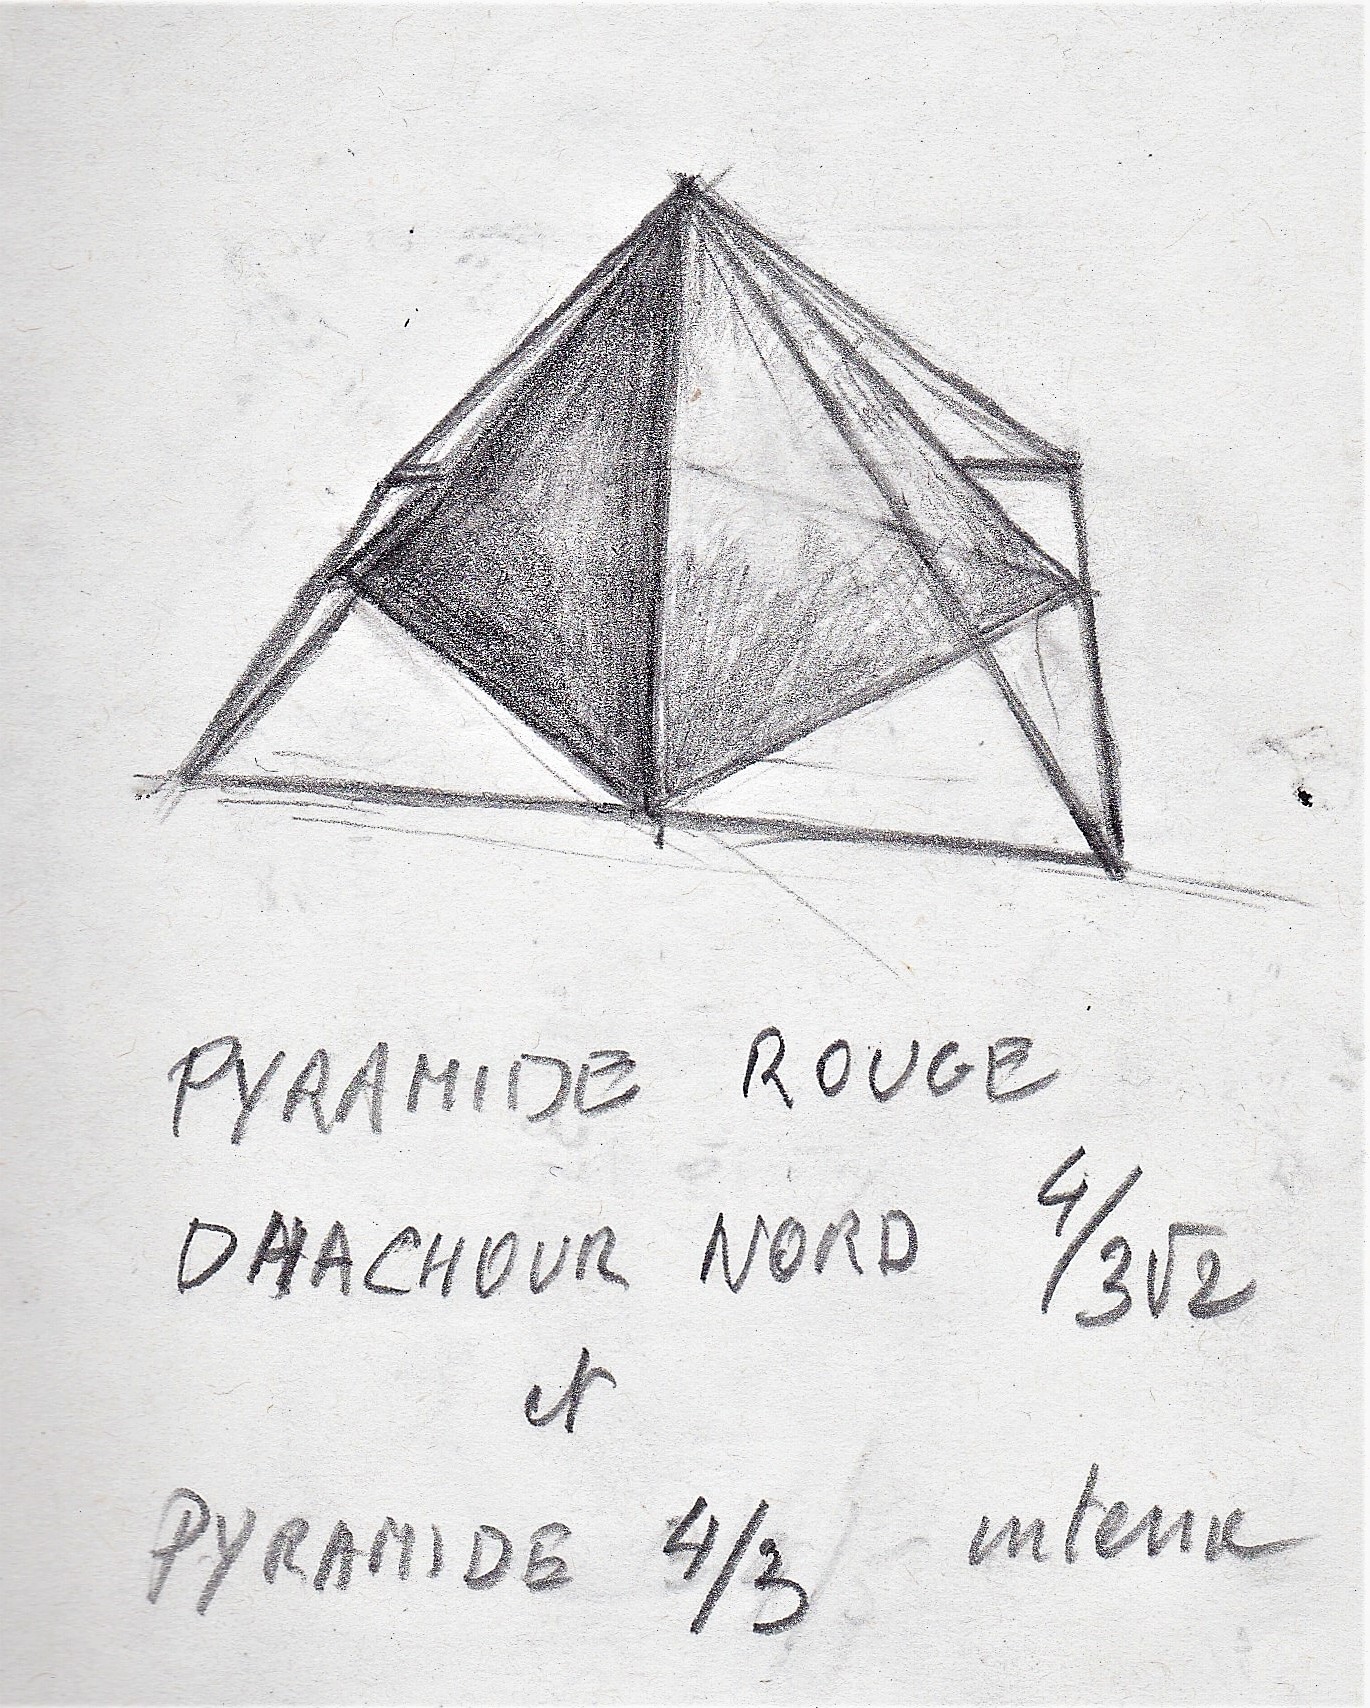 PYRAMIDE ROUGE
DAHACHOUR NORD 4/3√2
et
PYRAMIDE 4/3 interne